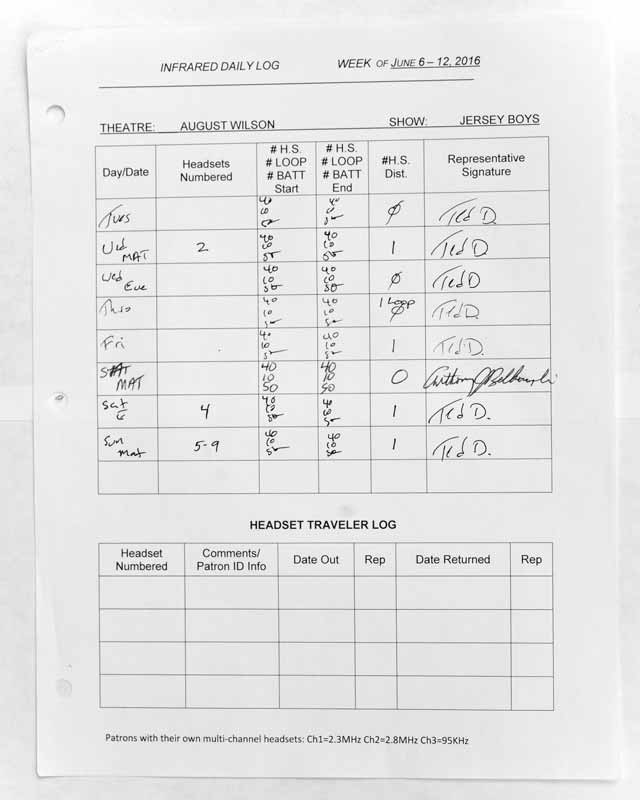 INFRARED DAILY LOG WEEK OF JUNE 6 – 12, 2016
THEATRE: AUGUST WILSON SHOW: JERSEY BOYS
Day/Date
Headsets
Numbered
# H.S.
# LOOP
# BATT
Start
# H.S.
# LOOP
# BATT
End
#H.S.
Dist.
Representative
Signature
Tues
40
10
50
40
10
50
Ø
Ted D.
Wed
MAT
2
40
10
50
40
10
50
1
Ted D
Wed
Eve
40
10
50
40
10
50
Ø
Ted D
Thus
40
10
50
40
10
50
1 Loop
Ø
Ted D.
Fri
40
10
50
40
10
50
1
Ted D.
SAT
MAT
40
10
50
40
10
50
0
Anthony J
Sat
4
40
10
50
40
10
50
1
Ted D.
Sun
Mat
5-9
40
10
50
40
10
50
1
Ted D.
HEADSET TRAVELER LOG
Headset
Numbered
Comments/
Patron ID Info
Date Out
Rep
Date Returned
Rep
Patrons with their own multi-channel headsets: Ch1=2.3MHz Ch2=2.8MHz Ch3=95KHz